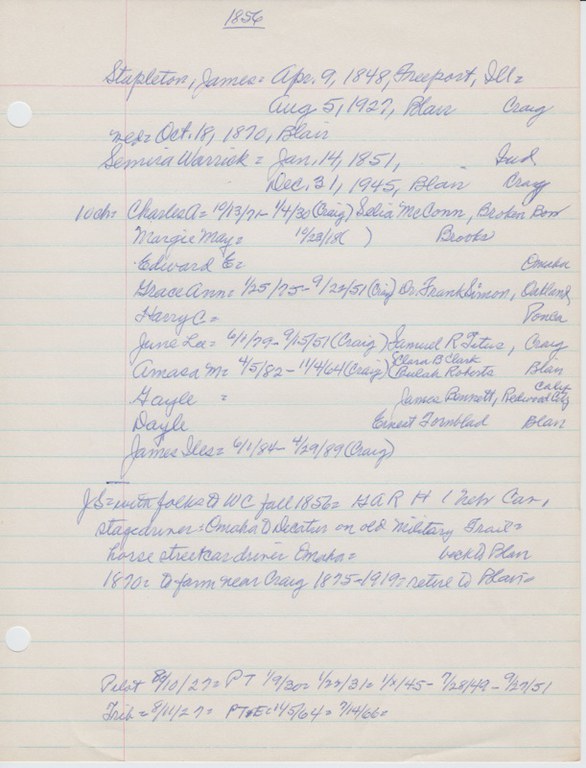 1856
Stapleton, James = Apr. 9, 1848, Freeport, Ill =
Aug 5, 1927, Blair Craig
med = Oct. 18, 1870, Blair
Semira Warrick = Jan. 14, 1851, Ind
Dec. 31, 1945, Blair Craig
10 ch = Charles A = 10/13/71 - 1/4/30 (Craig) McConn, Broken Bow
Margie May = ) Brooks
Edward E = Omaha
Grace Ann = 1/25/75 - 9/22/51 (Craig) Dr. Frank Simon, Oakland
Harry C = Ponca
June Lee = 6/1/79 - 9/15/51 (Craig) Samuel R Titus, Craig
Clara B Clark
Amasa M = 4/5/82 - 11/4/64 (Craig) Beulah Roberts Blair
Gayle = James Bennett, Redwood City Calif
Dayle Ernest Fornblad Blair
James Iles = 6/1/84 - 4/29/89 (Craig)
JS = with folks to WC fall 1856 = GAR H 1 Neb Cav,
stagedriver = Omaha to Decatur on old Military Trail =
horse streetcar driver Omaha = back to Blair
1870 = to farm near Craig 1875-1919 = retire to Blair =
Pilot 8/10/27 = PT 1/9/30 = 1/22/31 = 1/2/45 - 7/28/49 - 9/27/51
Trib = 8/11/27 = PT+E = 11/5/64 = 7/14/66 =